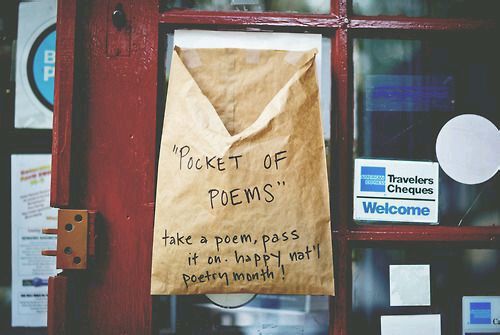 "POCKET OF
POEMS"
take a poem, pass
it on. happy nat'l
poetry month!
AMERICAN
EXPRESS
Travelers
Cheques
Welcome